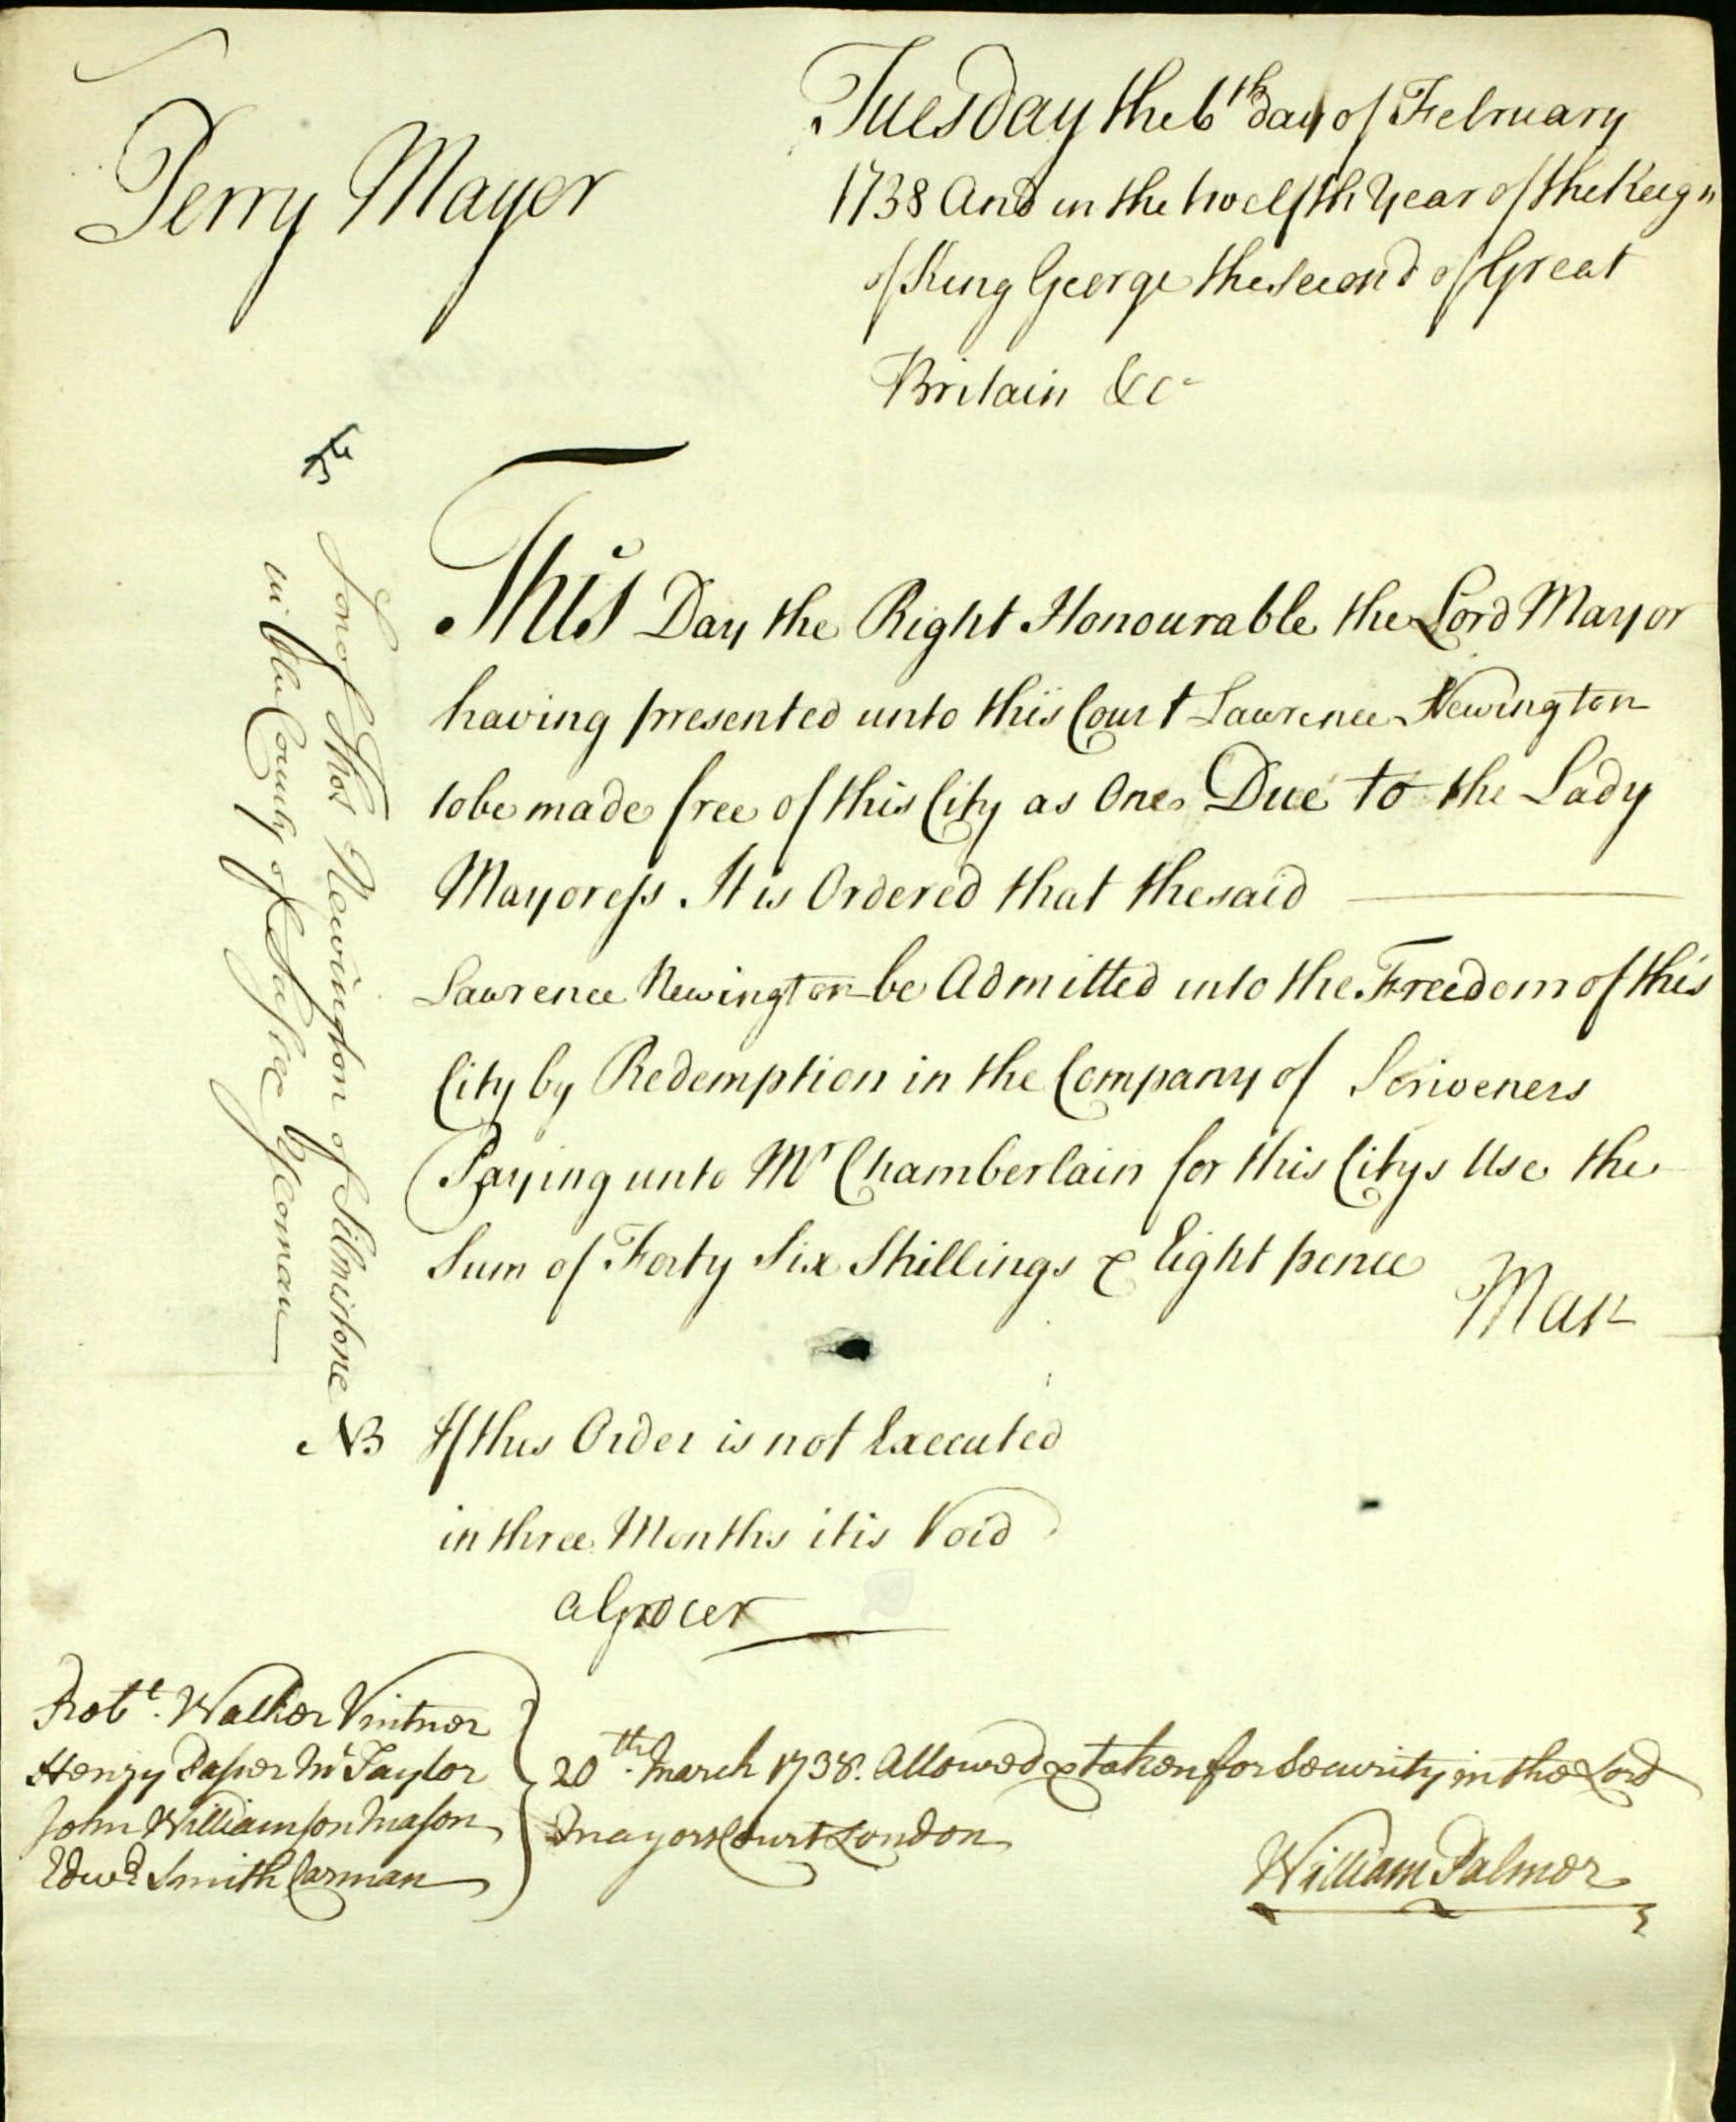 Perry Mayor
Tuesday the 6th day of February
1738 And in the twelfth Year of the Reign
of King George the Second of Great
Britain &c
This Day the Right Honourable the Lord Mayor
having presented unto this Court Lawrence Newington
to be made free of this City as One Due to the Lady
Mayoress. It is Ordered that the said
Lawrence Newington be Admitted into the Freedom of this
City by Redemption in the Company of Scriveners
Paying unto Mr Chamberlain for this Citys Use the
Sum of Forty Six Shillings & Eight pence
Man
Son of Thos Newington of Silmistone
in the County of Sussex Yeoman
NB If this Order is not Executed
in three Months it is Void
a Grocer
Robt. Walker Vintner
Henry Mr Taylor
John Williamson Mason
Edwd Smith Carman
20th March 1738. Allowed & taken for Security in the Lord
Mayors Court London
William Palmer